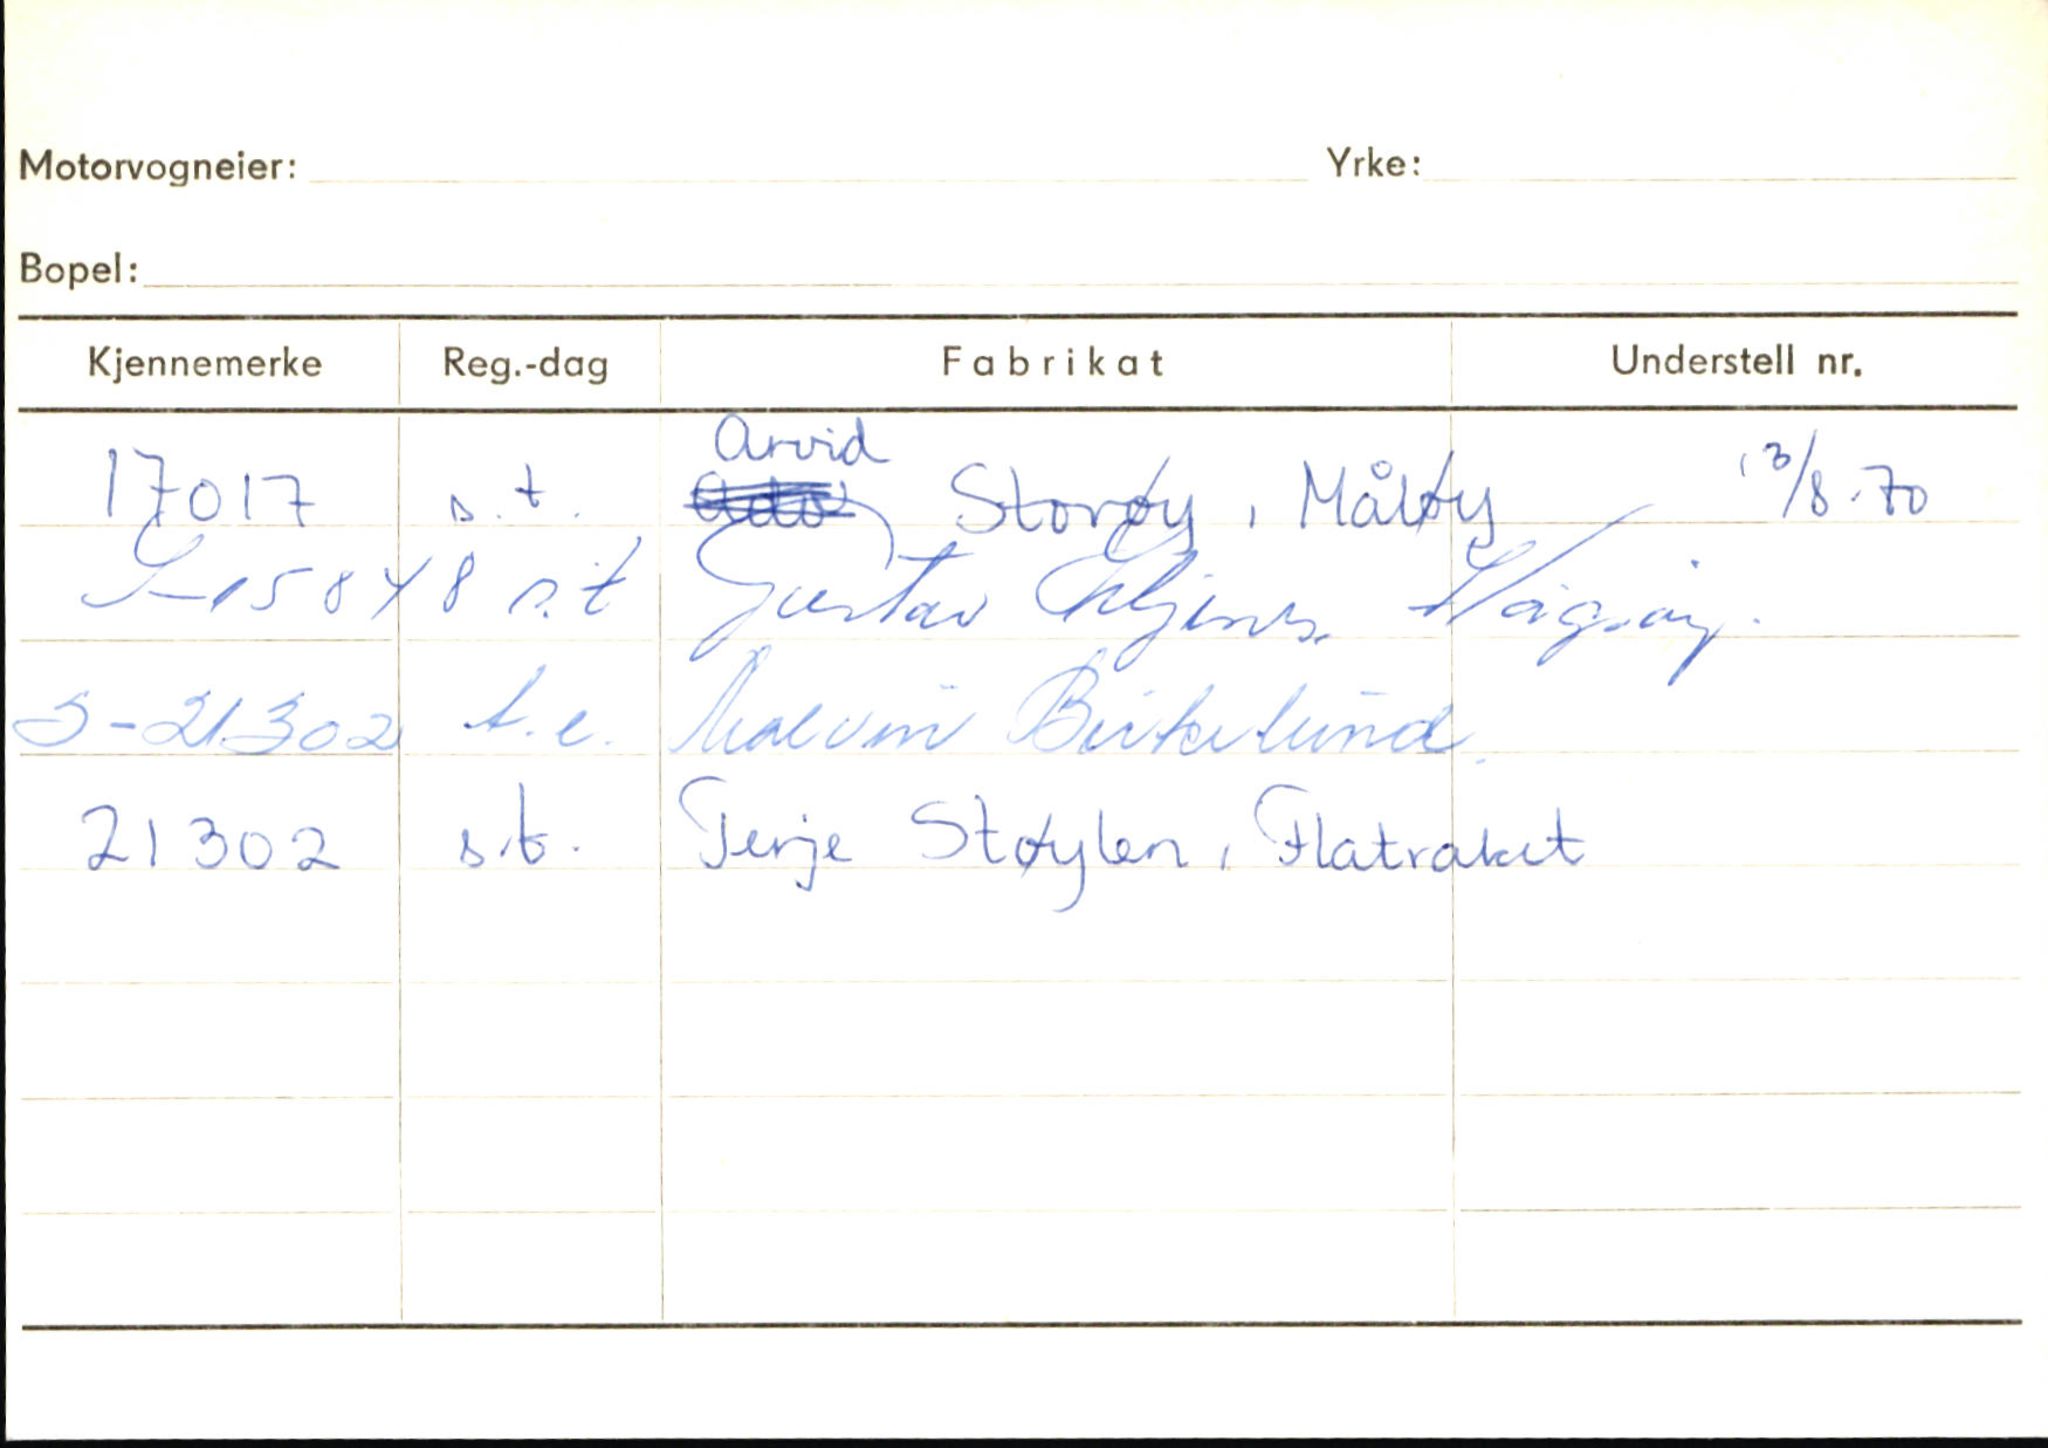 Motorvogneier: Yrke:
Bopel:
Kjennemerke Reg.-dag Fabrikat Understell nr.
Arvid
17017 s.t. Storøy, Måløy 13/8-70
S-15848 s.t Gustav Vågsøy.
S-21302 Birkelund.
21302 s.t. Terje Støylen, Flatraket